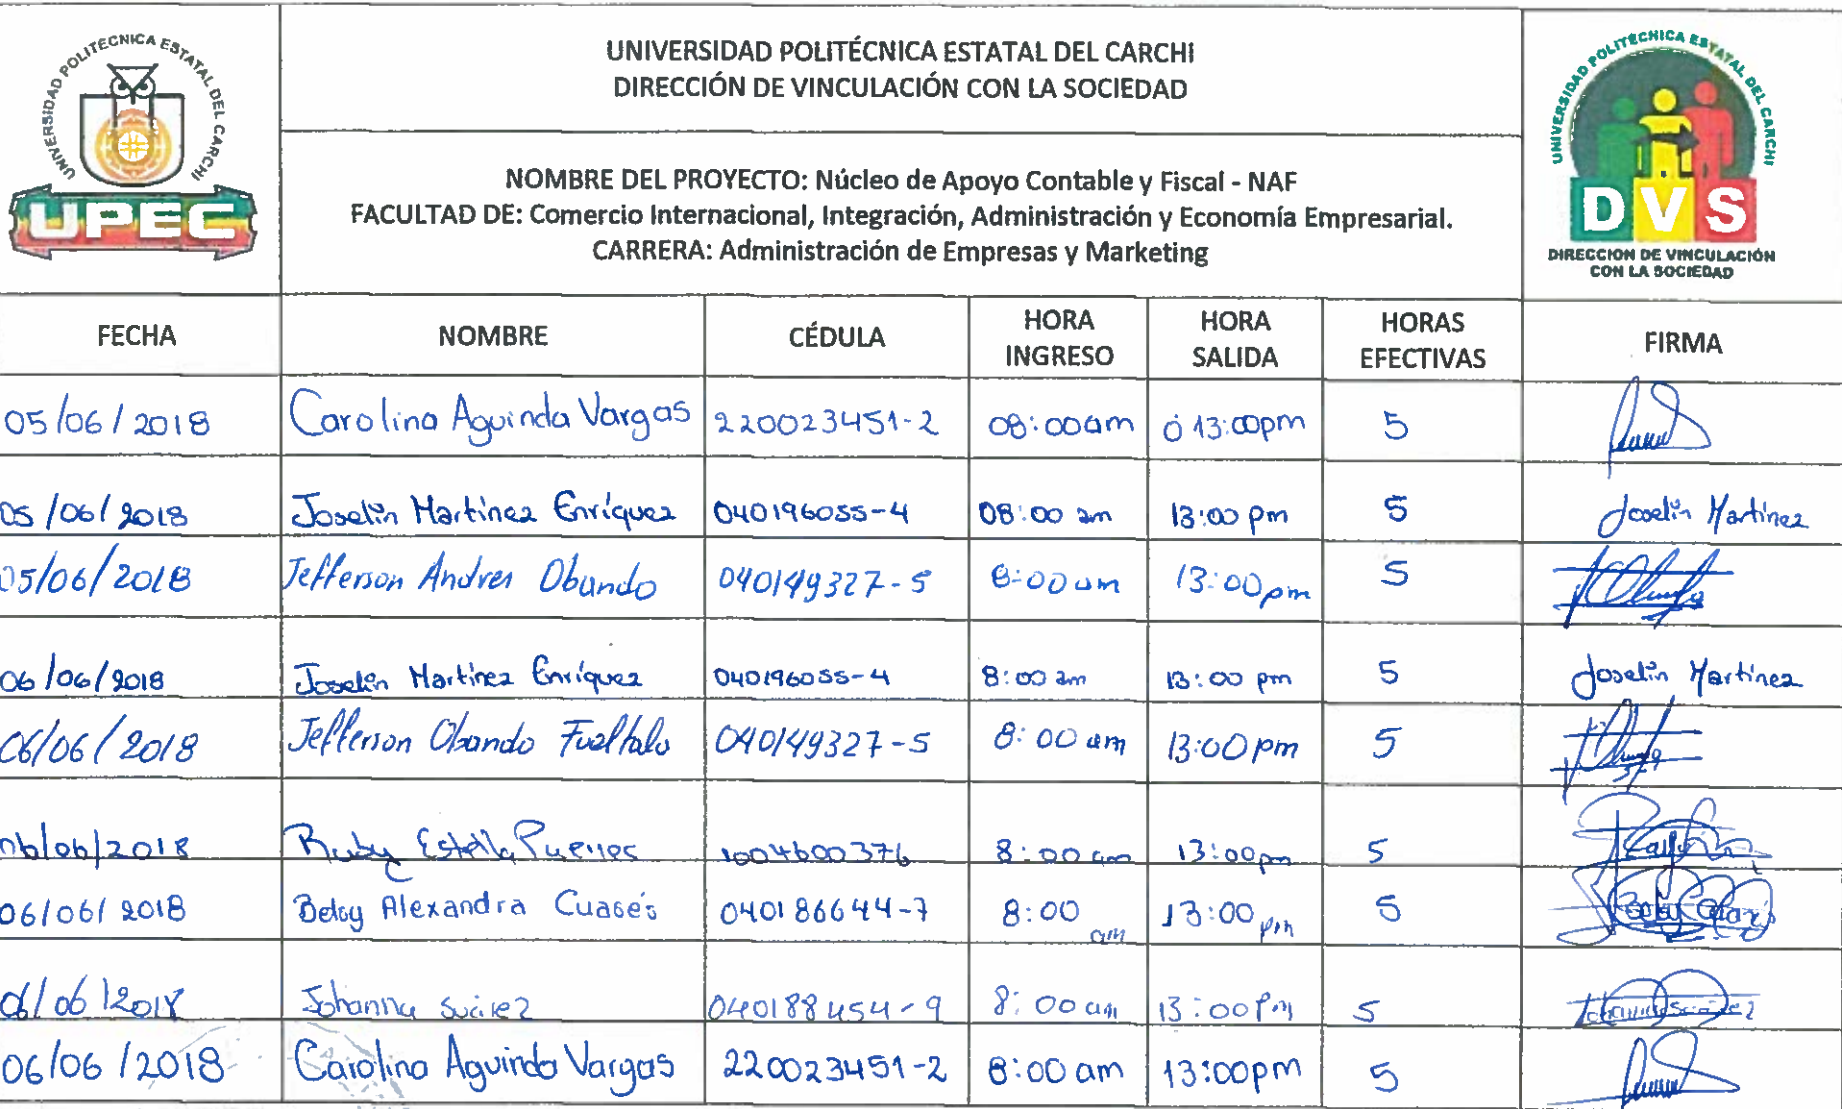 UNIVERSIDAD POLITÉCNICA ESTATAL DEL CARCHI
UPEC
UNIVERSIDAD POLITÉCNICA ESTATAL DEL CARCHI
DIRECCIÓN DE VINCULACIÓN CON LA SOCIEDAD
NOMBRE DEL PROYECTO: Núcleo de Apoyo Contable y Fiscal - NAF
FACULTAD DE: Comercio Internacional, Integración, Administración y Economía Empresarial.
CARRERA: Administración de Empresas y Marketing
UNIVERSIDAD POLITECNICA ESTATAL DEL CARCHI
DVS
DIRECCION DE VINCULACIÓN
CON LA SOCIEDAD
FECHA NOMBRE CÉDULA HORA INGRESO HORA SALIDA HORAS EFECTIVAS FIRMA
05/06/2018 Carolina Aguinda Vargas 220023451-2 08:00am 13:00pm 5
05/06/2018 Joselin Martinez Enríquez 040196055-4 08:00 am 13:00 pm 5 Joselin Martinez
05/06/2018 Jefferson Andres Obando 040149327-5 8:00 am 13:00 pm 5
06/06/2018 Joselin Martinez Enríquez 040196055-4 8:00 am 13:00 pm 5 Joselin Martinez
06/06/2018 Jefferson Obando 040149327-5 8:00 am 13:00 pm 5
06/06/2018 Ruby Estella 1004600376 8:00 am 13:00pm 5
06/06/2018 Betsy Alexandra Cuasés 040186644-7 8:00 am 13:00 pm 5
06/06/2018 Johanna Suárez 040188454-9 8:00 am 13:00 Pm 5 Johanna Suárez
06/06/2018 Carolina Aguinda Vargas 220023451-2 8:00 am 13:00pm 5